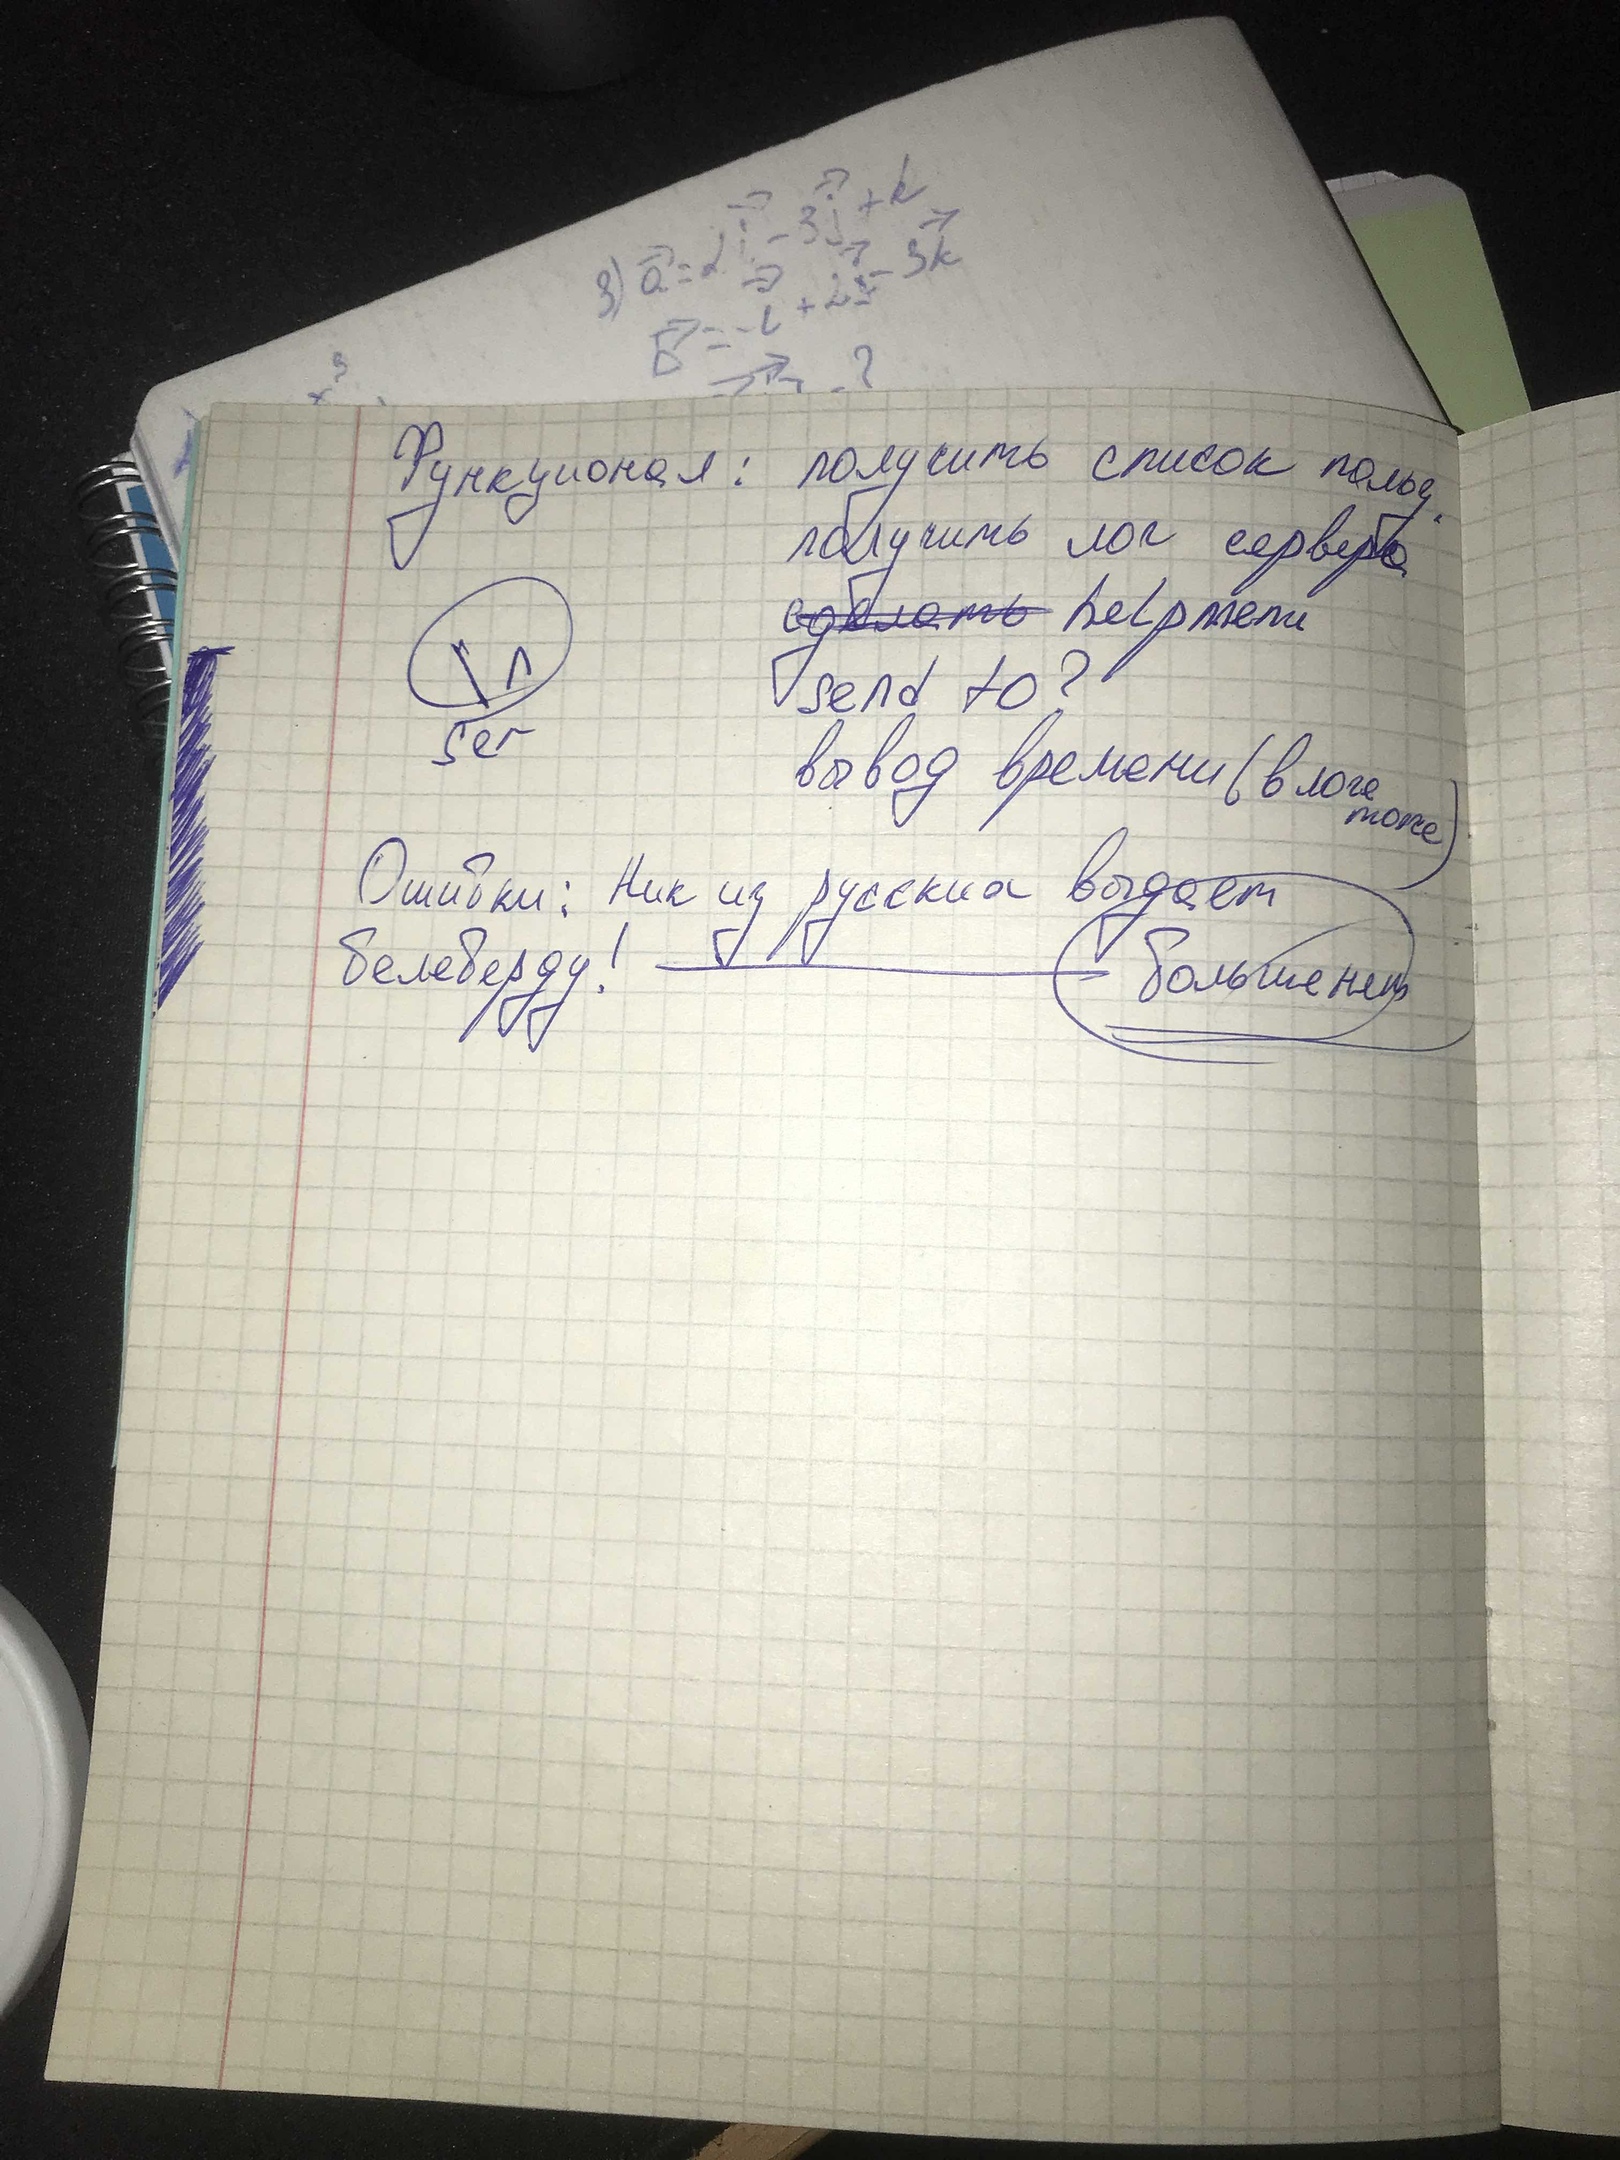 3) a = 2i - 3j + k
b = -i + 2j - 3k
?
x³
Функционал: получить список польз.
получить лог сервера
сделать helpmenu
send to?
\n
ser
вывод времени (в логе
тоже)
Ошибки: Ник из русских выдает
белеберду! больше нет